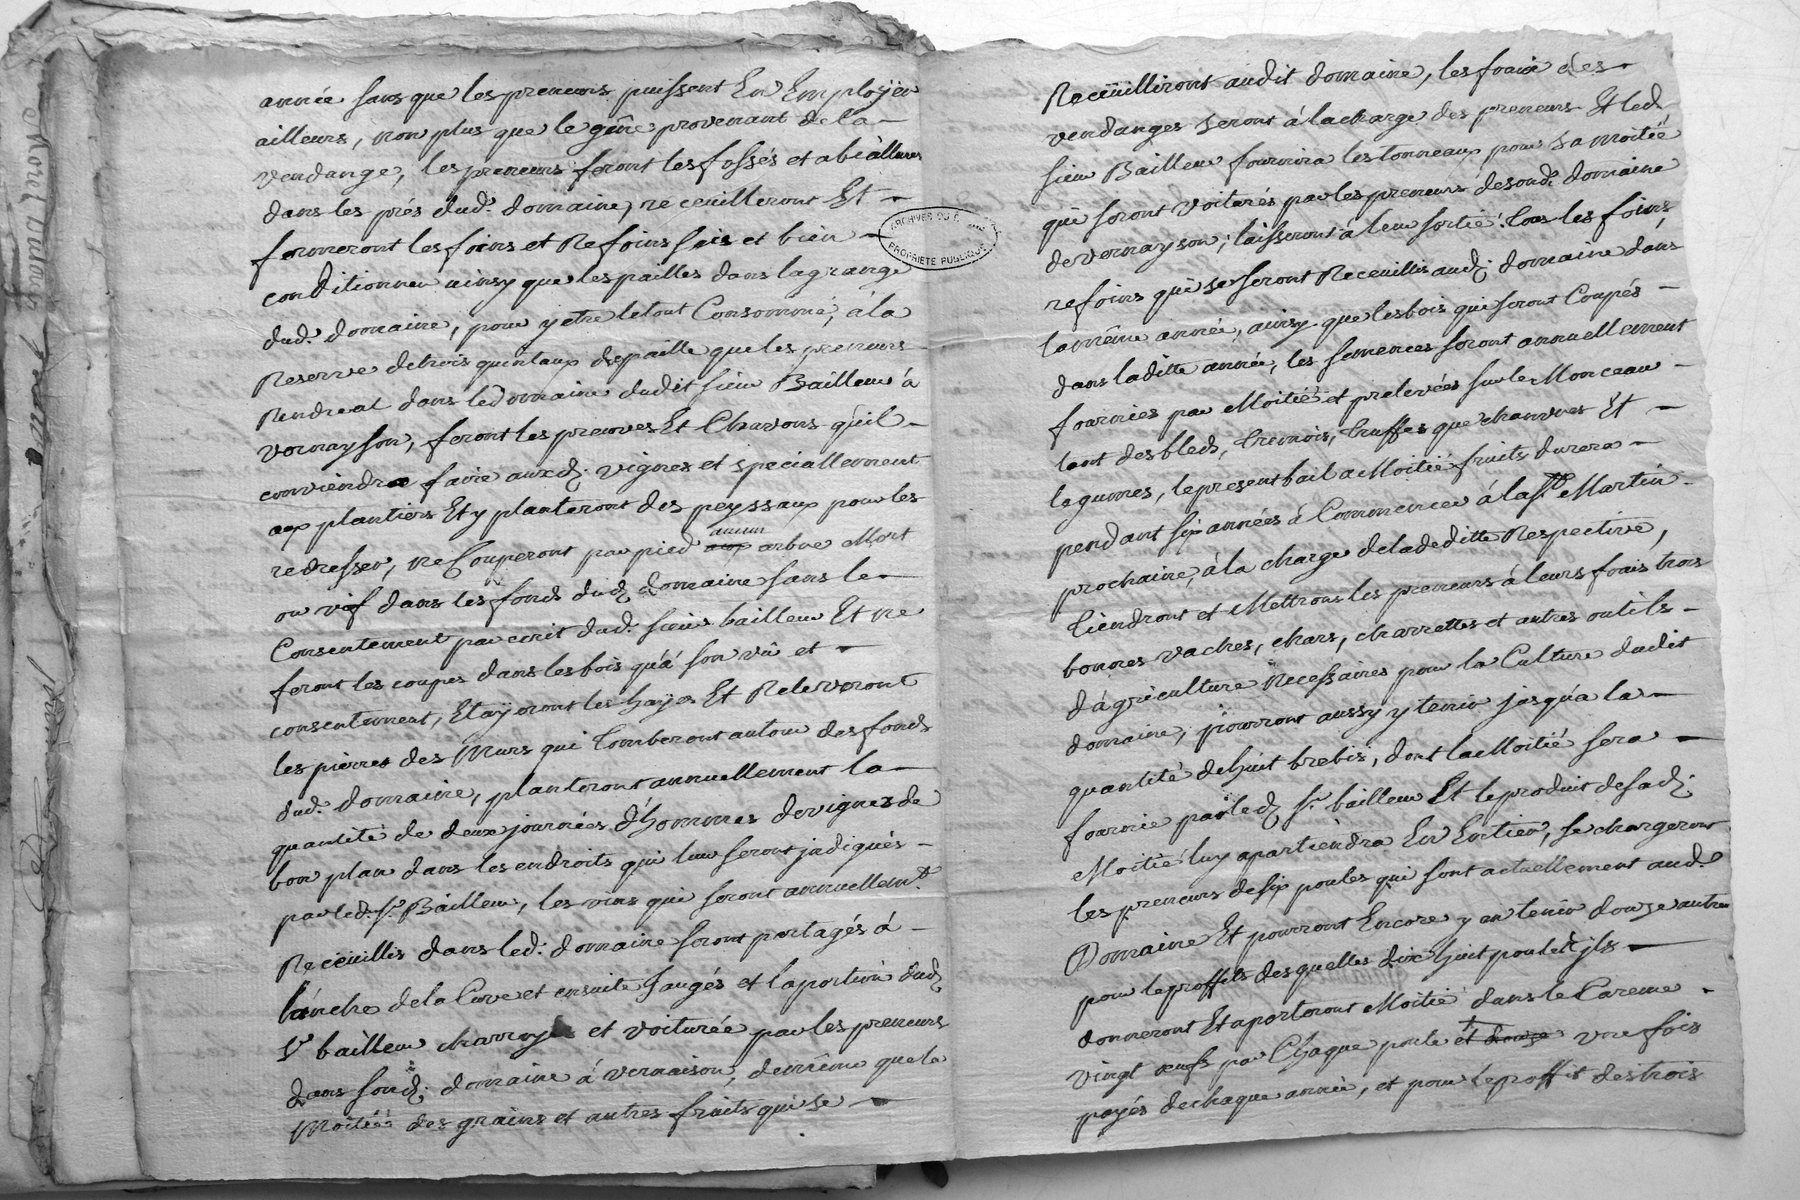 année sans que les preneurs puissent En Employer
ailleurs, non plus que le gêne provenant de la
vendange, les preneurs feront les fossés et abéallures
dans les prés dud. domaine, receuilleront Et
fermeront les foins et Refoins secs et bien
conditionnea ainsy que les pailles dans la grange
dud. domaine, pour y etre le tout Consommé, à la
Reserve de trois quintaux de paille que les preneurs
Rendreat dans le Domaine dudit sieur Bailleur à
vornayson, feront les preuves Et Chavons qu'il
conviendra faire auxd. vignes et speciallement
aux plantiers Et y planteront des peyssaux pour les
redresser, ne Couperont par pied aucun arbre Mort
ou vif dans les fonds dud. domaine sans le
Consentement par ecrit dud. sieur bailleur Et ne
feront les coupes dans les bois qu'à son vû et
consentement, Etayeront les hayes Et Releveront
les pierres des Murs qui tomberont autour des fonds
dud. domaine, planteront annuellement la
quantité de deux journées d'hommes de vignes de
bon plan dans les endroits qui leur seront jndiqués
par led. Sr. Bailleur, les vins qui seront annuellemt.
Receüillis dans led. domaine seront partagés à
l'anche de la Cuve et ensuite Jaugés et la portion dud.
Sr. bailleur charroyée et voiturée par les preneurs
dans sond. domaine à vernaison, de même que la
Moitiéé des grains et autres fruits qui se
Receüilliront audit domaine, les fraix des
vendanges seront à la charge des preneurs Et led.
sieur Bailleur fournira les tonneaux pour sa moitié
qui seront voiturés par les preneurs de sond. domaine
de vernayson; laisseront à leur sortie tous les foins,
refoins qui se seront Receuillis aud. domaine dans
la même année, ainsy que les bois qui seront Coupés
dans la ditte année, les semences seront annuellement
fournies par Moitié et prelevées sur le Monceau
tant des bleds, tremois, truffes que chanvres Et
legumes, le present bail a Moitié fruits durera
pendant six années à Commencer à la St. Martin
prochaine, à la charge de la deditte Respective,
tiendront et Mettrons les preneurs à leurs frais trois
bonnes vaches, chars, charrettes et autres outils
d'agriculture Necessaires pour la Culture dudit
domaine, pourront aussy y tenir jusqu'a la
quantité de huit brebis, dont la Moitié sera
fournie par led. Sr. bailleur Et le produit de sad.
Moitié luy apartiendra En Entier, se chargeront
les preneurs de six poules qui sont actuellement aud.
Domaine Et pourront Encore y en tenir douze autres
pour le proffits desquelles dix huit poules jls
donneront Et aporteront Moitié dans le Careme
vingt oeufs par Chaque poule et douze une fois
payés de chaque année, et pour le proffit des trois
ARCHIVES DU
PROPRIETE PUBLIQUE